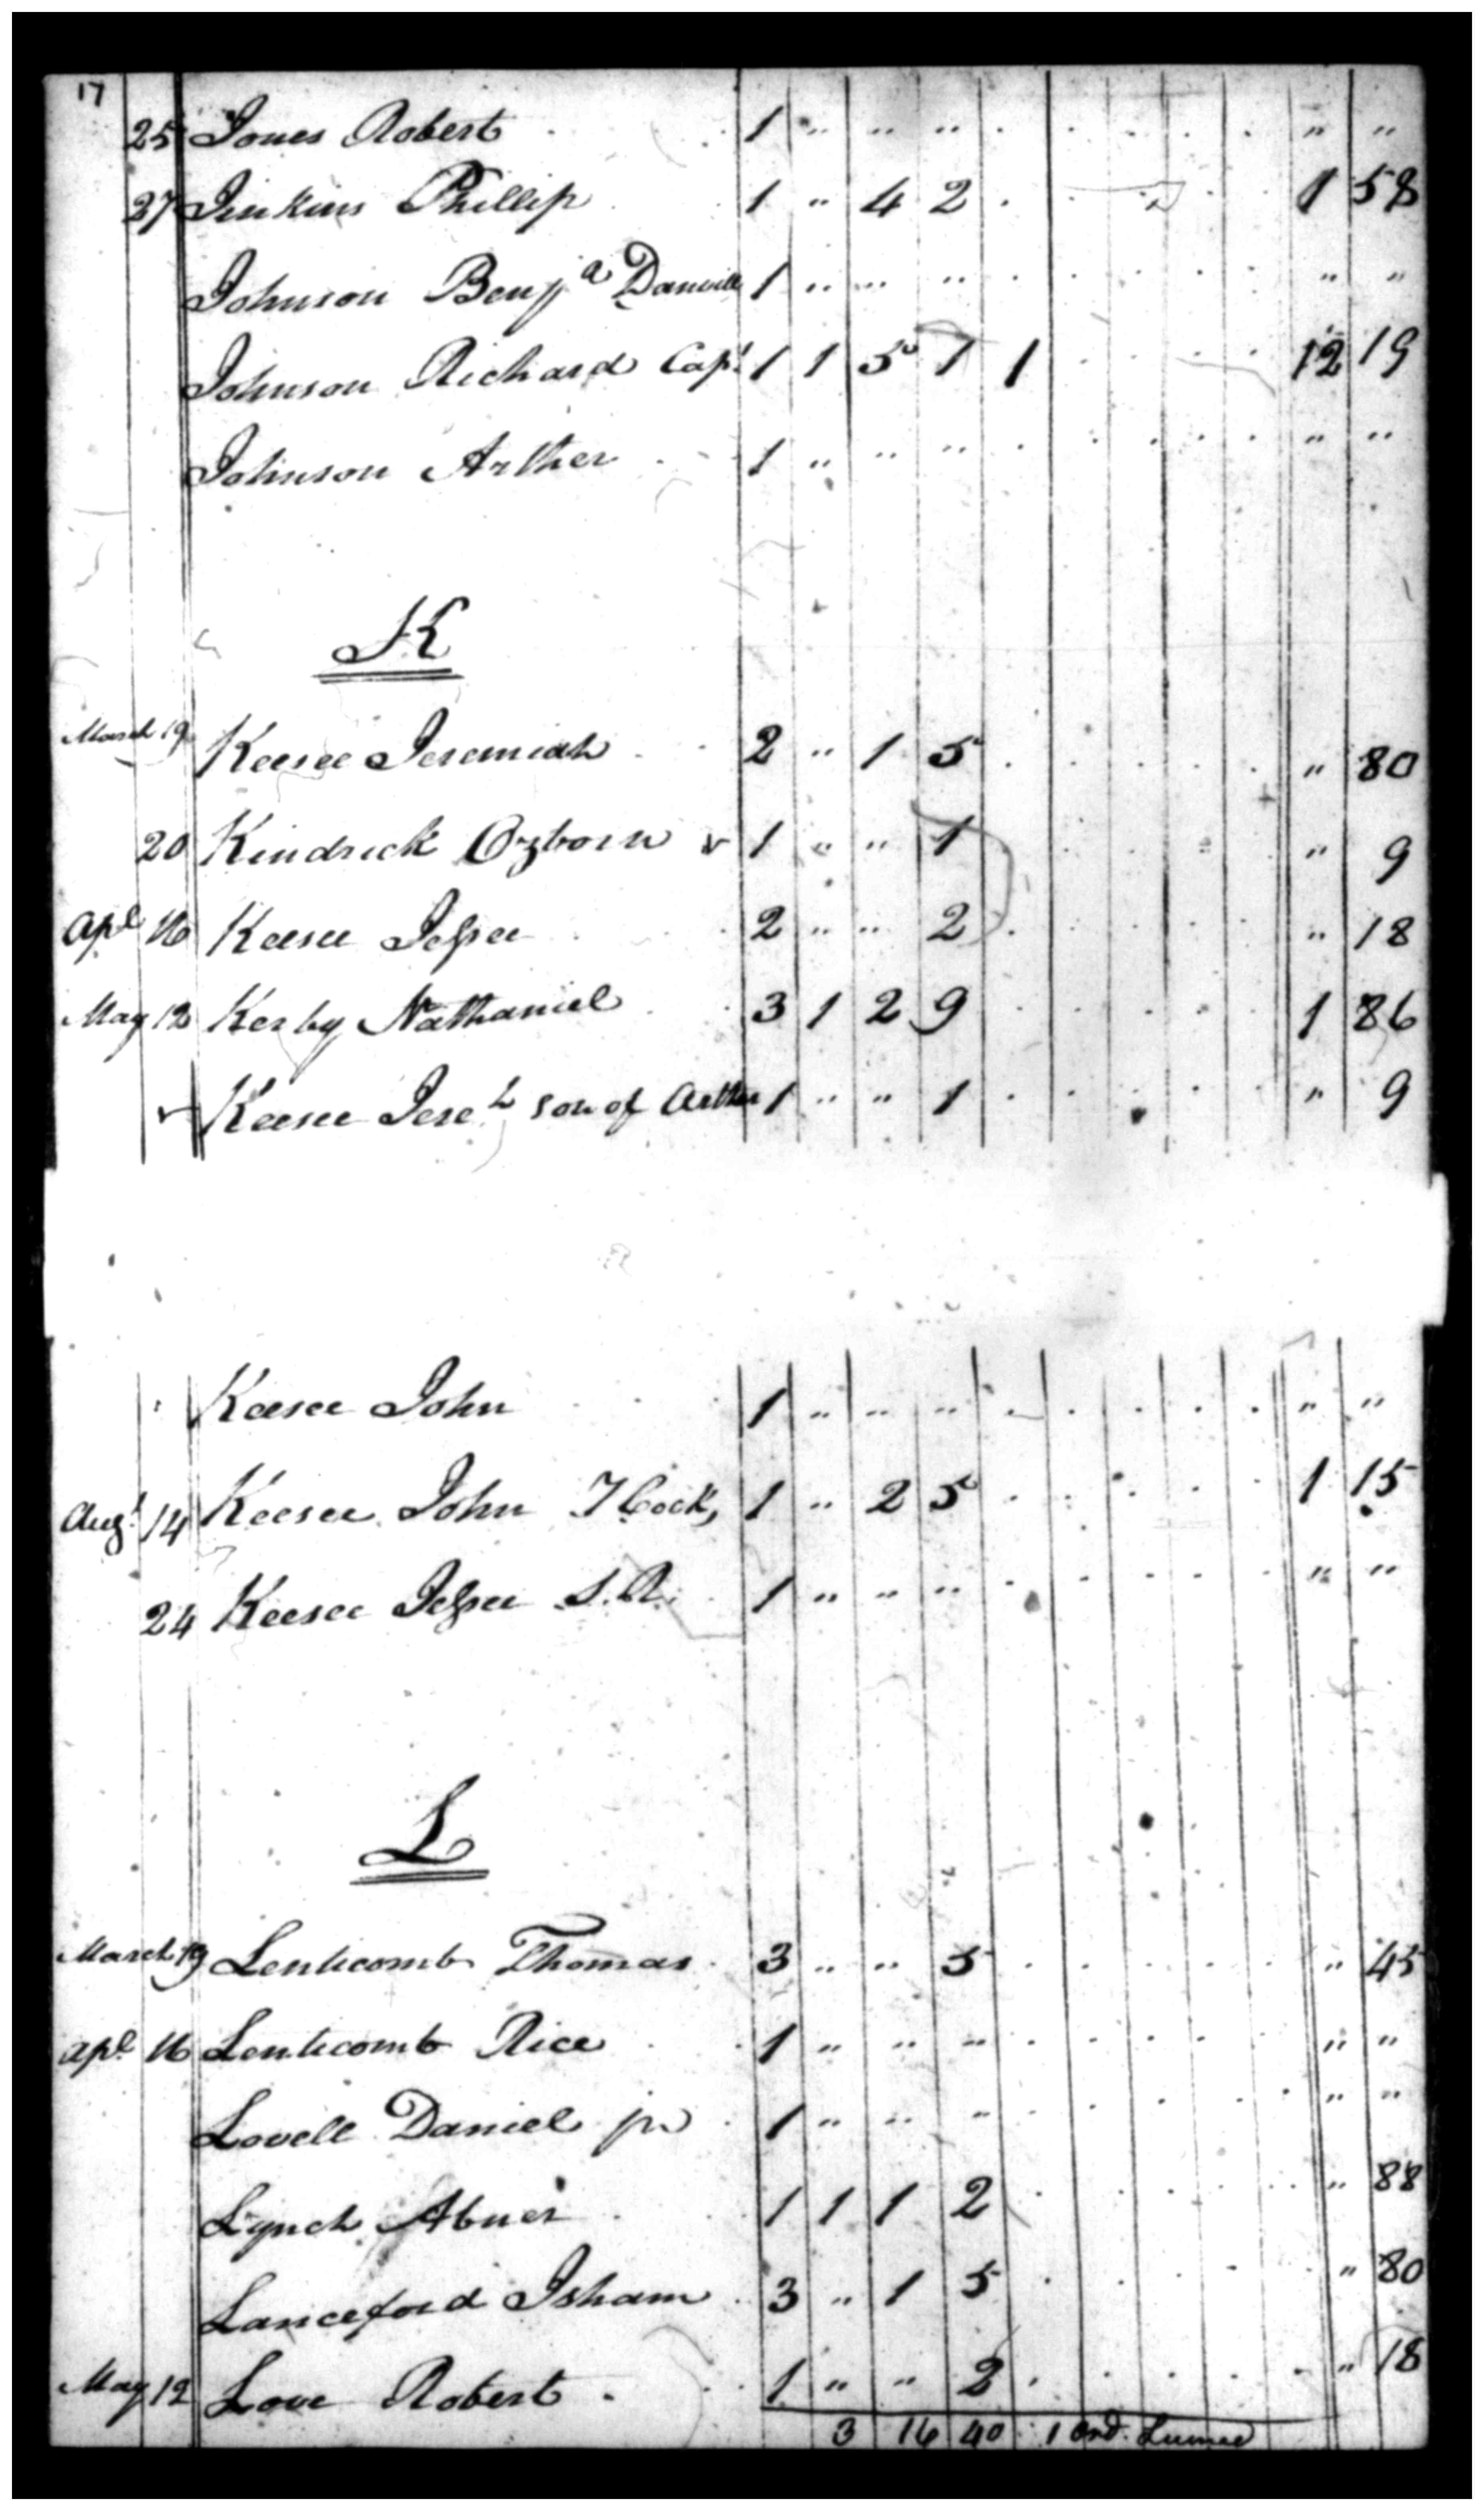 17
25 Jones Robert 1 " " " " "
27 Jinkins Phillip 1 " 4 2 1 58
Johnson Benja Danville 1 " " " " "
Johnson Richard Capt 1 1 5 1 1 12 19
Johnson Arther 1 " " " " "
K
March 19 Keesee Jeremiah 2 " 1 5 " 80
20 Kindrick Ozborn v 1 " " 1 " 9
Apl 16 Keesee Jessee 2 " " 2 " 18
May 12 Kerby Nathaniel 3 1 2 9 1 86
Keesee Jereh son of Arther 1 " " 1 " 9
Keesee John 1 " " " " "
Augt 14 Keesee John 1 " 2 5 1 15
24 Keesee Jessee S.R. 1 " " " " "
L
March 19 Lenticomb Thomas 3 " " 5 " 45
Apl 16 Lenticomb Rice 1 " " " " "
Lovell Daniel jr 1 " " " " "
Lynch Abner 1 1 1 2 " 88
Lanceford Isham 3 " 1 5 " 80
May 12 Love Robert 1 " " 2 " 18
3 16 40 1 Ord.